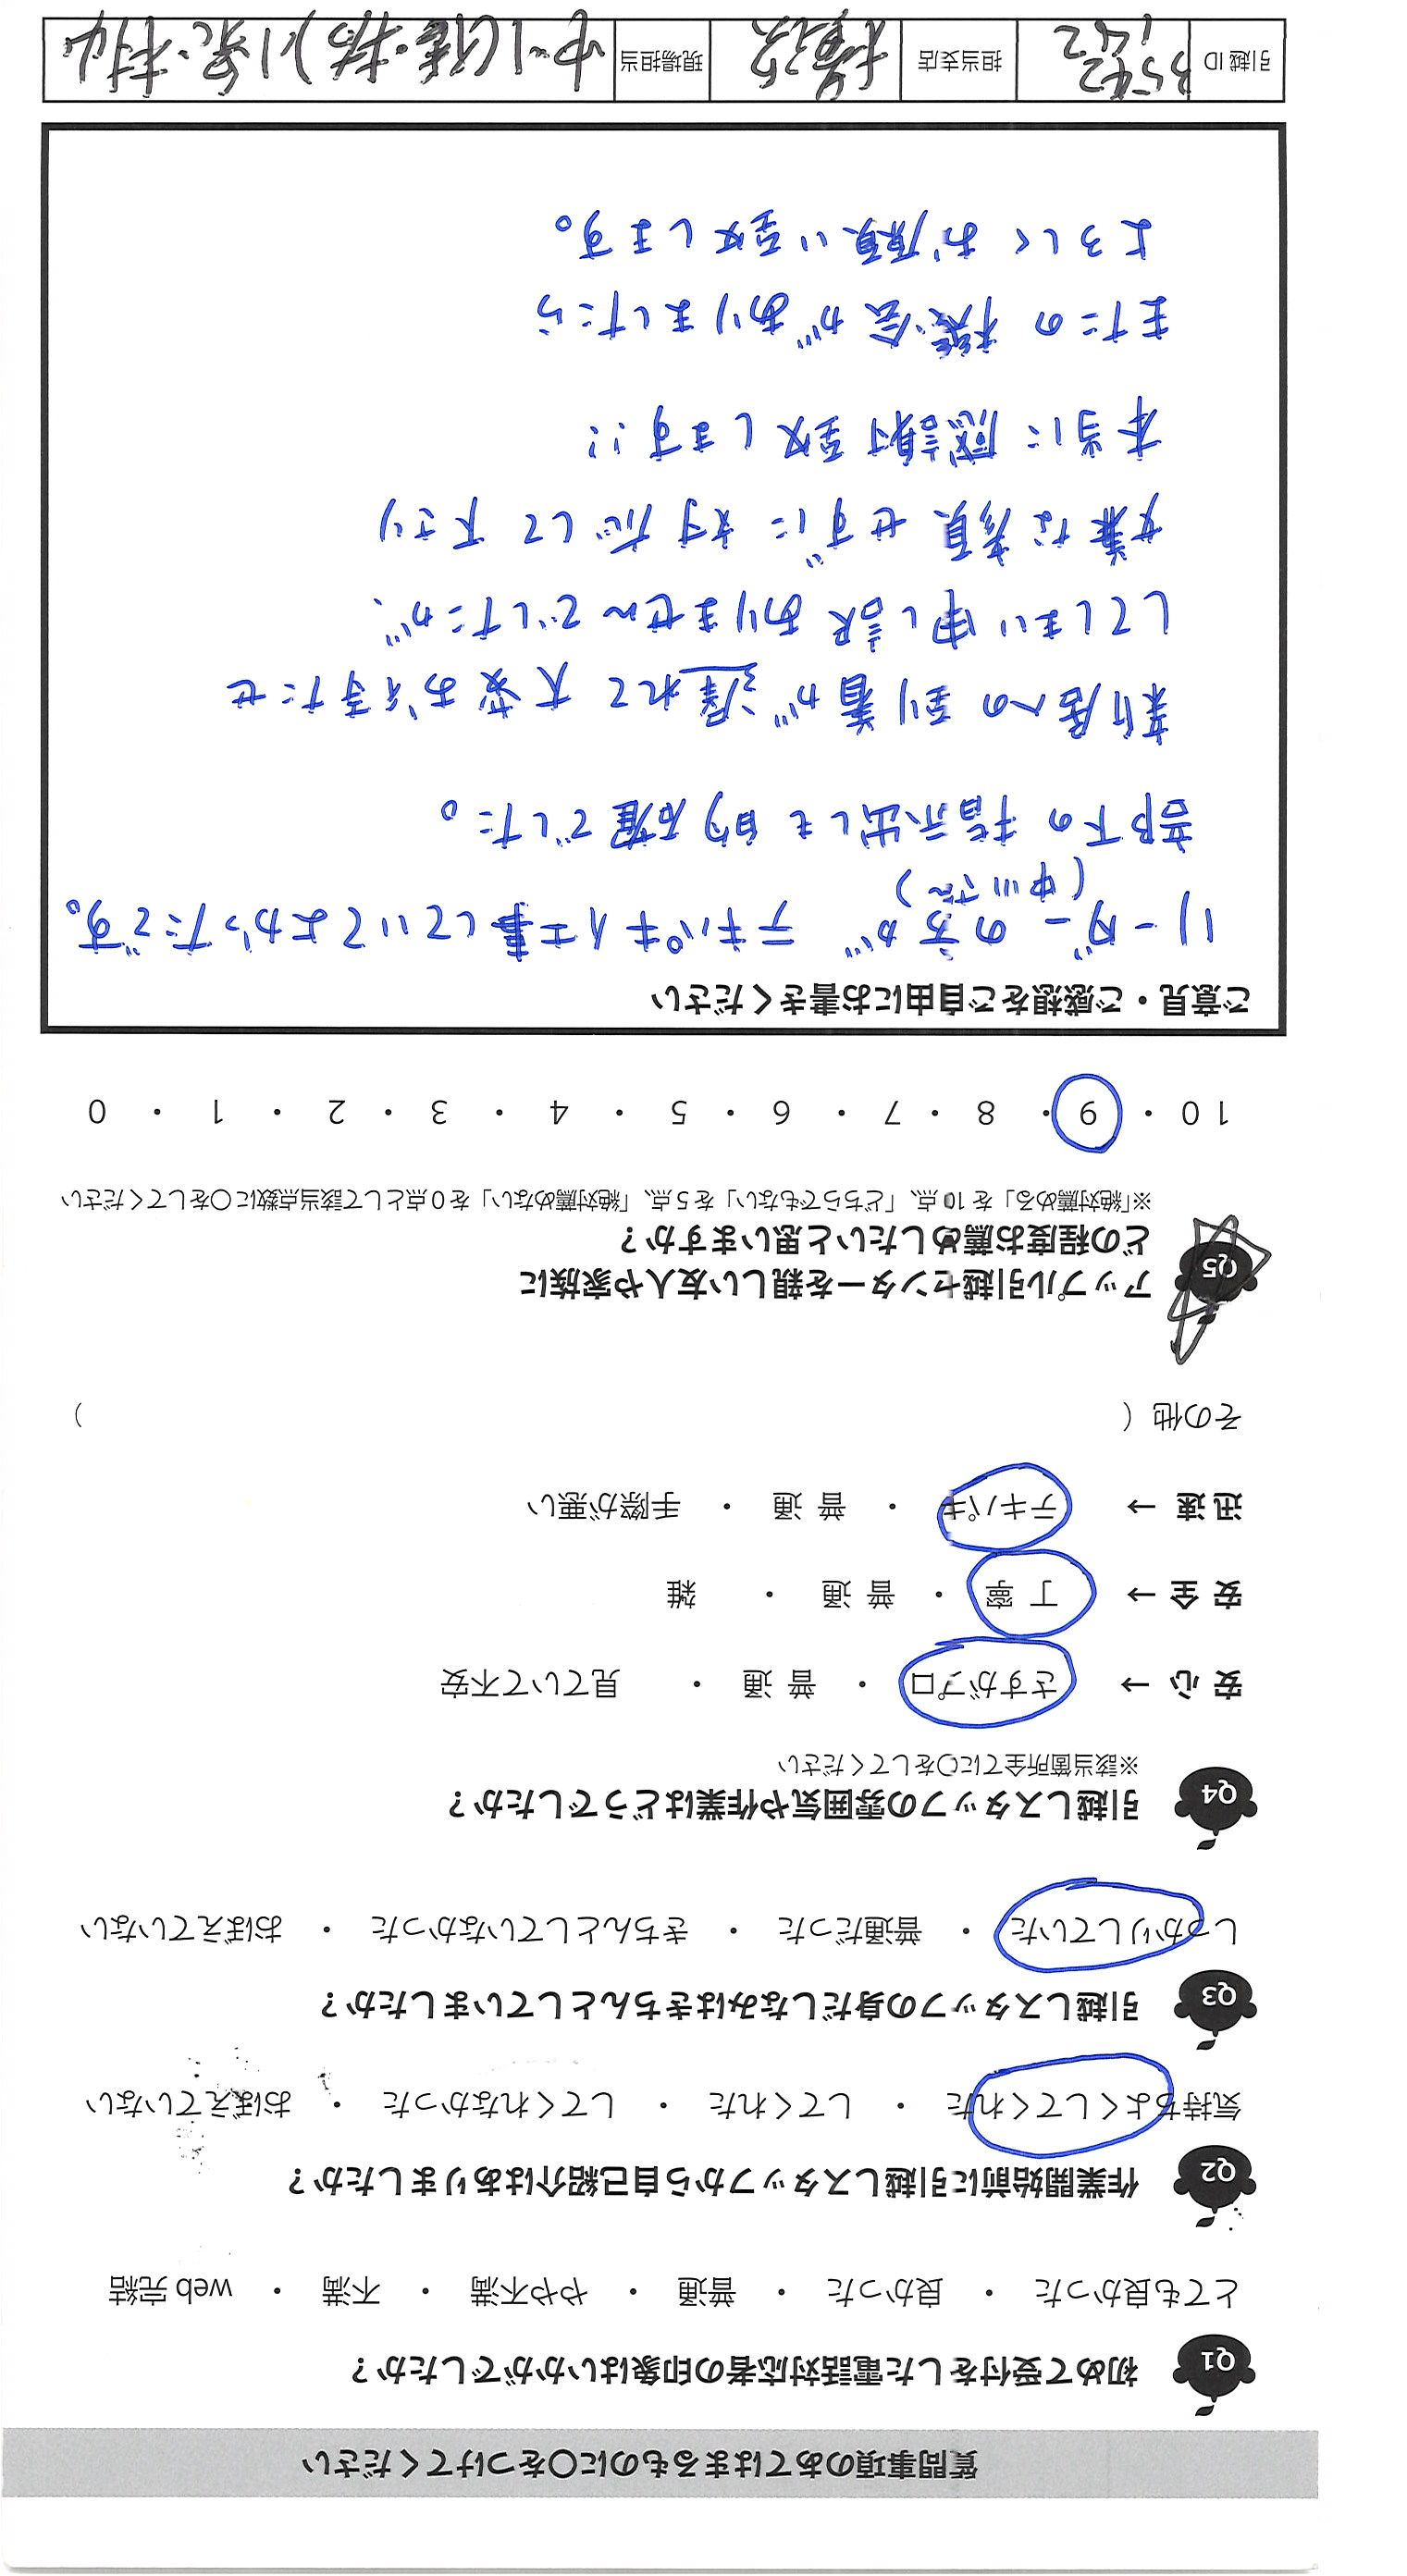 質問事項のあてはまるものに〇をつけてください
Q1 初めて受付をした電話対応者の印象はいかがでしたか？
とても良かった ・ 良かった ・ 普通 ・ やや不満 ・ 不満 ・ web 完結
Q2 作業開始前に引越しスタッフから自己紹介はありましたか？
気持ちよくしてくれた ・ してくれた ・ してくれなかった ・ おぼえていない
Q3 引越しスタッフの身だしなみはきちんとしていましたか？
しっかりしていた ・ 普通だった ・ きちんとしていなかった ・ おぼえていない
Q4 引越しスタッフの雰囲気や作業はどうでしたか？
※該当箇所全てに〇をしてください
安 心 → さすがプロ ・ 普 通 ・ 見ていて不安
安 全 → 丁 寧 ・ 普 通 ・ 雑
迅 速 → テキパキ ・ 普 通 ・ 手際が悪い
その他（ ）
Q5 アップル引越センターを親しい友人や家族に
どの程度お薦めしたいと思いますか？
※「絶対薦める」を 10 点、「どちらでもない」を 5 点、「絶対薦めない」を 0 点として該当点数に〇をしてください
10 ・ 9 ・ 8 ・ 7 ・ 6 ・ 5 ・ 4 ・ 3 ・ 2 ・ 1 ・ 0
ご意見・ご感想をご自由にお書きください
リーダーの方が テキパキ仕事していてよかったです。
(中川さん)
部下の指示出しも的確でした。
新居への到着が遅れて大変お待たせ
してしまい申し訳ありませんでしたが、
嫌な顔せずに対応して下さり
本当に感謝致します!!
またの機会がありましたら
よろしくお願い致します。
引越 ID 担当支店 横浜 現場担当